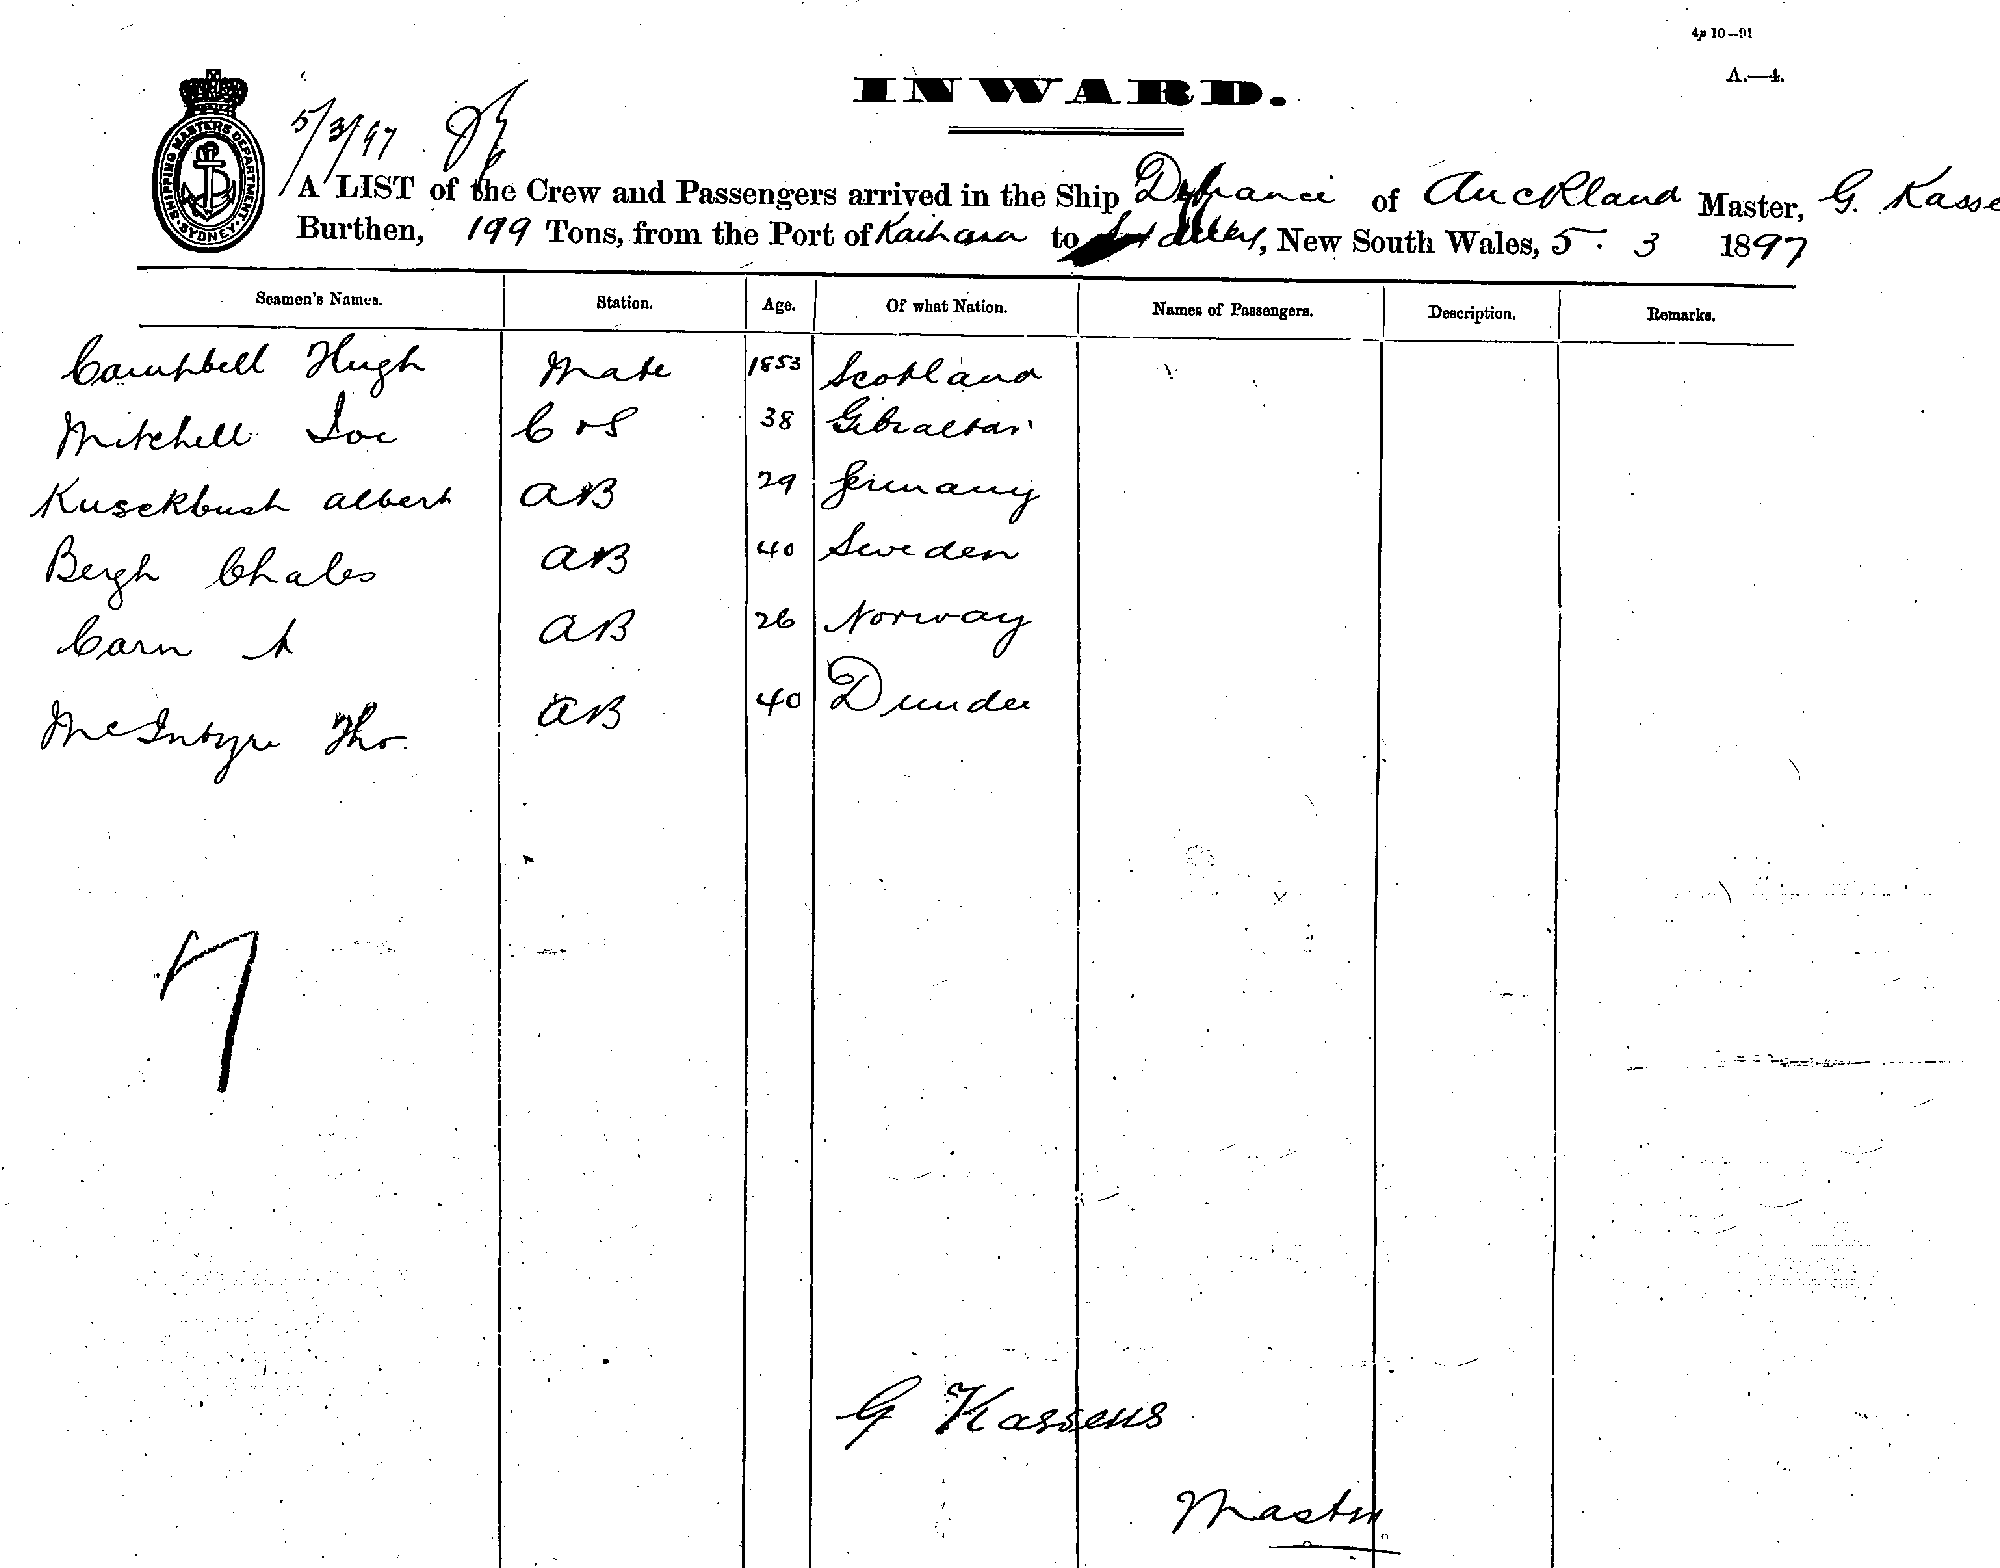 4p 10—91
A.—4.
INWARD.
SHIPPING MASTERS DEPARTMENT SYDNEY
5/3/97
A LIST of the Crew and Passengers arrived in the Ship Defiance of Auckland Master, G. Kasse
Burthen, 199 Tons, from the Port of Kaihara to , New South Wales, 5 . 3 1897
Seamen's Names. Station. Age. Of what Nation. Names of Passengers. Description. Remarks.
Campbell Hugh Mate 1853 Scotland
Mitchell Joe C & S 38 Gibraltar
Kusekbush Albert AB 29 Germany
Bergh Chales AB 40 Sweden
Carn A AB 26 Norway
McIntyre Tho. AB 40 Dundee
7
G Kassens
Master